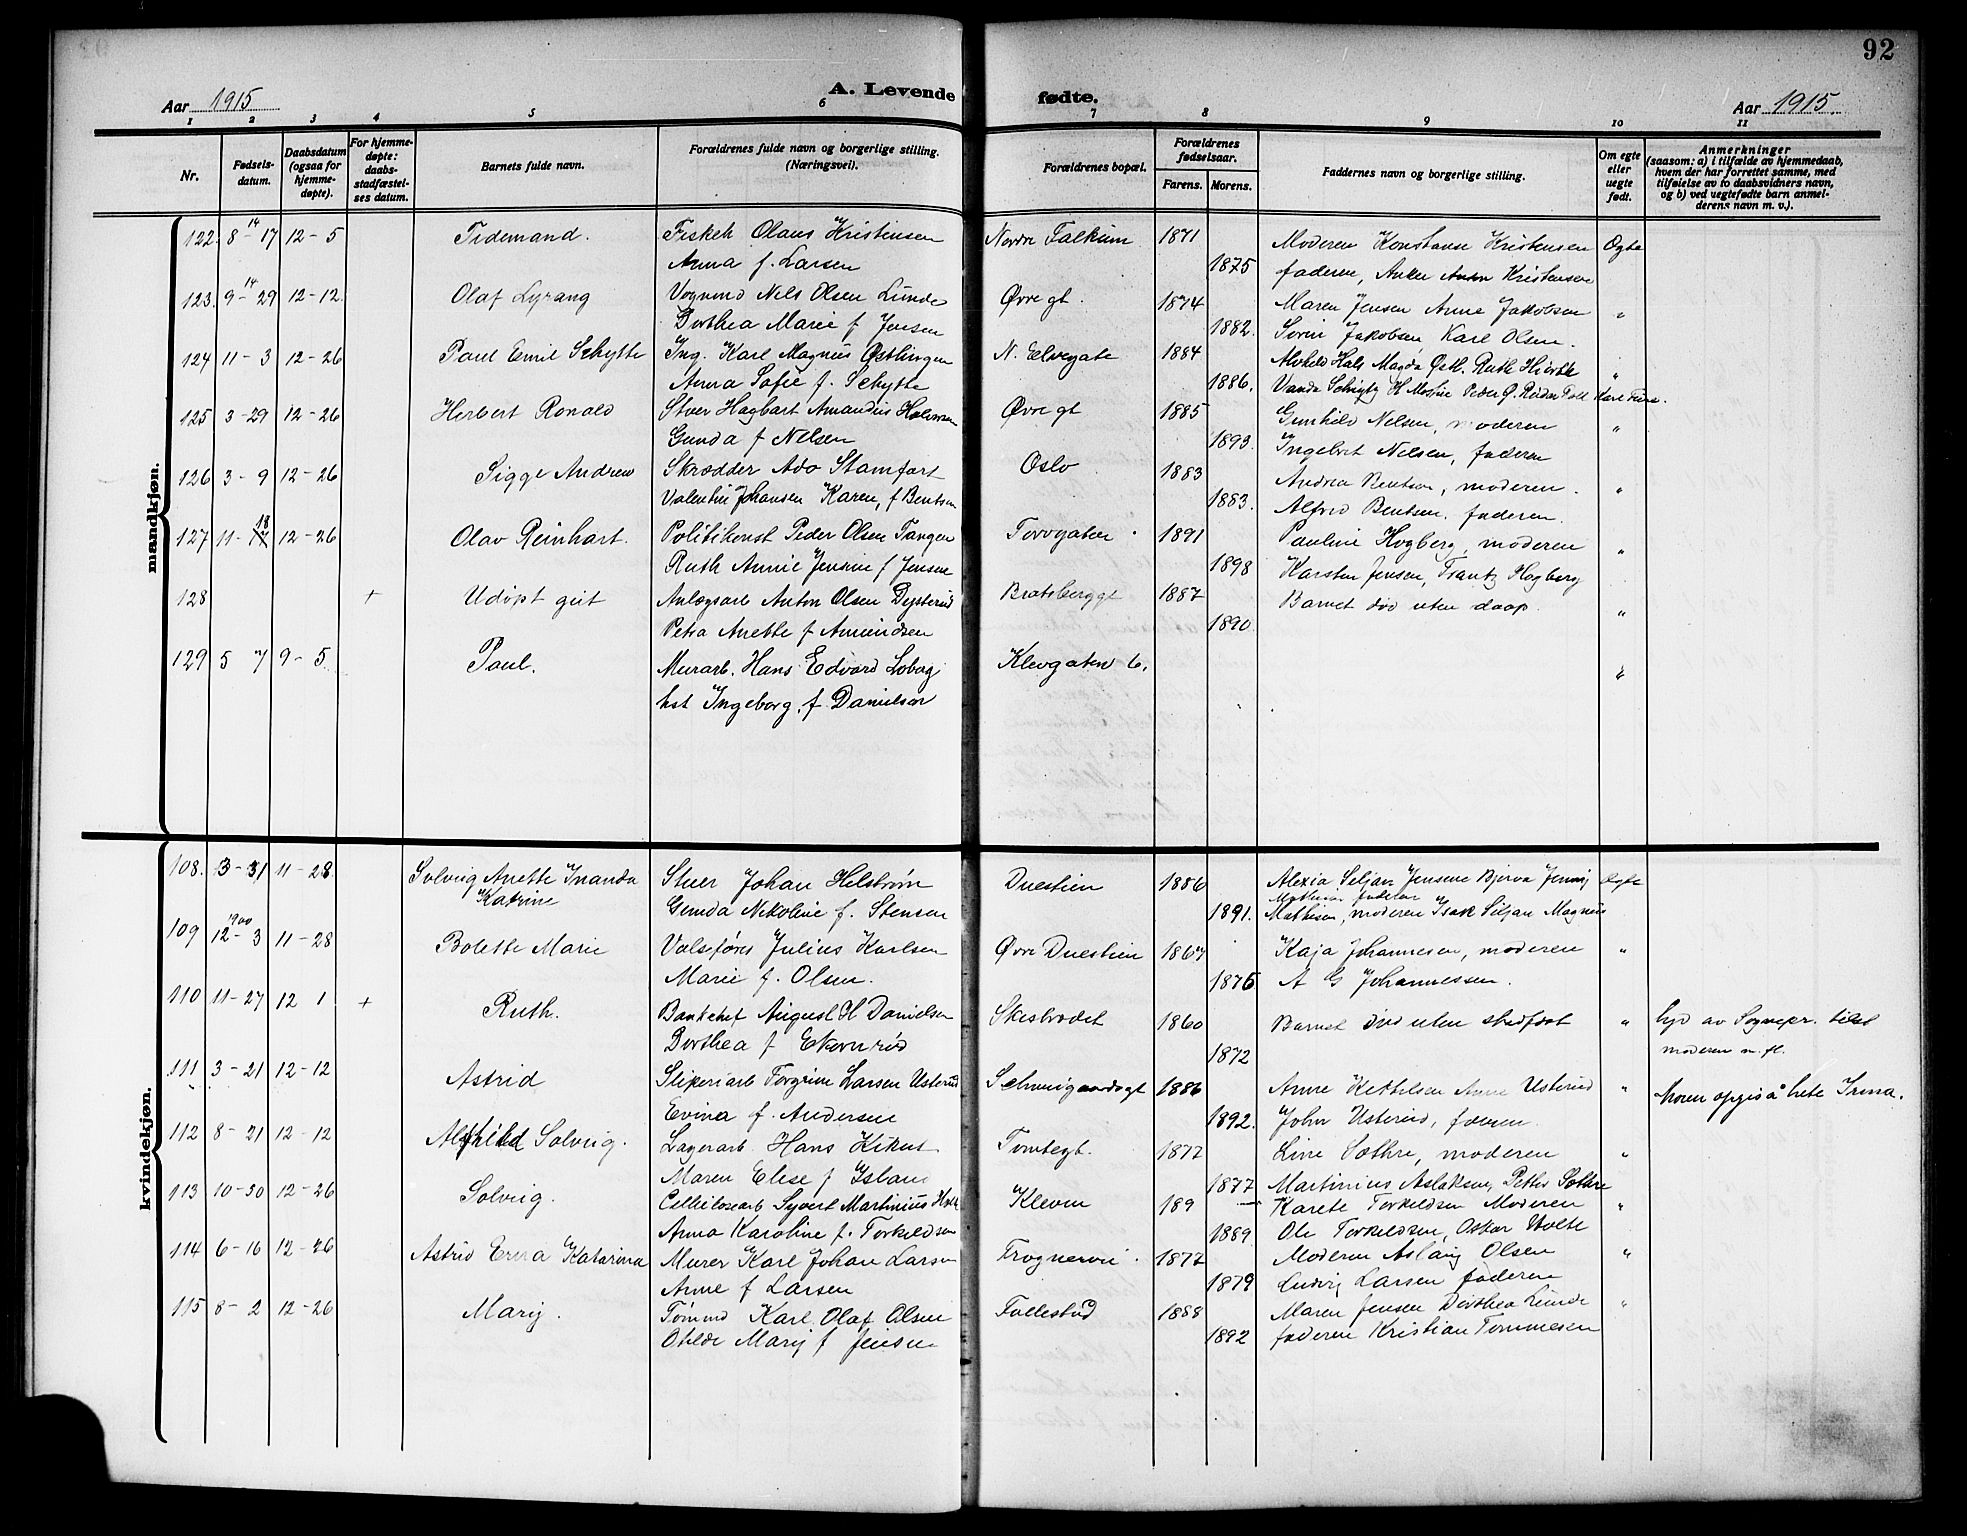 92
Aar 1915
A. Levende
fødte.
Aar 1915.
1 2 3 4 5 6 7 8 9 10 11
Nr.
Fødsels-
datum.
Daabsdatum
(ogsaa for
hjemme-
døpte).
For hjemme-
døpte:
daabs-
stadfæstel-
ses datum.
Barnets fulde navn.
Forældrenes fulde navn og borgerlige stilling.
(Næringsvei).
Forældrenes bopæl.
Forældrenes
fødselsaar.
Farens. Morens.
Faddernes navn og borgerlige stilling.
Om egte
eller
uegte
født.
Anmerkninger
(saasom: a) i tilfælde av hjemmedaab,
hvem der har forrettet samme, med
tilføielse av to daabsvidners navn,
og b) ved uegtefødte barn anmel-
derens navn m. v.).
mandkjøn.
122. 8-17 14 12-5 Tidemand. Fiskeh Olaus Kristensen Nordre Falkum 1871 Moderen Konstanse Kristensen Egte
Anna f. Larsen 1875 faderen, Anker Kristensen
123. 9-29 14 12-12 Olaf Lyrang Vognmd Nils Olsen Lunde Øvre gt. 1874 Maren Jensen Anne Jakobsen "
Dorthea Marie f Jensen 1882. Søren Jakobsen, Karl Olsen.
124 11-3 12-26 Paul Emil Schytte Ing. Karl Magnus Østlingen N. Elvegate 1884 Alvhild Hals Magda Østl. Ruth Hiorth "
Anna Sofie f. Schytte 1886. Vanda Schytte H Peder Ø. Reidar
125 3-29 12-26 Herbert Ronald Stuer Hagbart Amandus Halvorsen Øvre gt 1885 Gunhild Nelsen, moderen "
Gunda f Nelsen 1893. Ingebret Nelsen, faderen
126 3-9 12-26 Sigge Andrew Skrædder Ado Stamfart Oslo 1883 Andrea Bentsen, moderen. "
Valentin Johansen Karen, f Bentsen 1883. Alfred Bentsen, faderen.
127 11-18 12-26 Olav Reinhart. Politikonst Peder Olsen Tangen Torvgaten 1891 Pauline Hogberg, moderen "
Ruth Annie Jensine f Jensen 1898 Karsten Jensen, Frantz Hogberg
128 + Udøpt gut Anlægsarb Anton Olsen Dysterud Bratsberggt 1887 Barnet død uten daap. "
Petra Anette f Amundsen 1890.
129 5 7 9-5. Paul. Murarb. Hans Edvard Lobag Klevgaten 6. "
hst Ingeborg, f Danielsen
kvindekjøn.
108. 3-31 11-28 Solveig Anette Inanda Stuer Johan Helstrøm Duestien 1886 Alexia Seljan Jensene Bjerva Jenny Egte
Katrine Gunda Nikoline f. Stensen 1891. Mathisen, moderen Isak Siljan Magnus
Mathisen faderen
109 1900 12-3 11-28 Bolette Marie Valsefører Julius Karlsen Øvre Duestien 1867 Kaja Johannesen, moderen "
Marie f. Olsen. 1876 A G Johannessen.
110 11-27 12 1 + Ruth. Bankchef August H Danielsen Skisbrodet 1860 Barnet død uten stadfæst " hjd av Sognepr. tilst
Dorthea f Ekornrud 1872 moderen m. fl.
111 3-21 12-12 Astrid Sliperiarb Torgrim Larsen Usterud Schweigaardsgt 1886 Anne Kettelsen Anne Usterud " Moren opgis å hete Irina.
Evina f. Andersen 1892. John Usterud, faderen.
112 8-21 12-12 Alfhild Solveig. Lagerarb Hans Kikut Tomtegt. 1877 Line Sothre, moderen "
Maren Elise f Island 1877 Martinius Aslaksen, Petter Sothre
113 10-30 12-26 Solveig. Cellulosearb Syvert Martinius Holte Kleven 189 Karete Torkildsen Moderen "
Anna Karoline f. Torkildsen 1889. Ole Torkildsen, Oskar Holte
114 6-16 12-26 Astrid Erna Katarina Murer Karl Johan Larsen Frognervei. 1877 Moderen Aslaug Olsen "
Anne f Larsen 1879 Ludvig Larsen faderen
115 8-2 12-26 Mary. Tømmd Karl Olaf Olsen Follestad 1888 Maren Jensen Dorthea Lunde "
Otilde Mary f Jensen 1892 faderen Kristian Tommesen